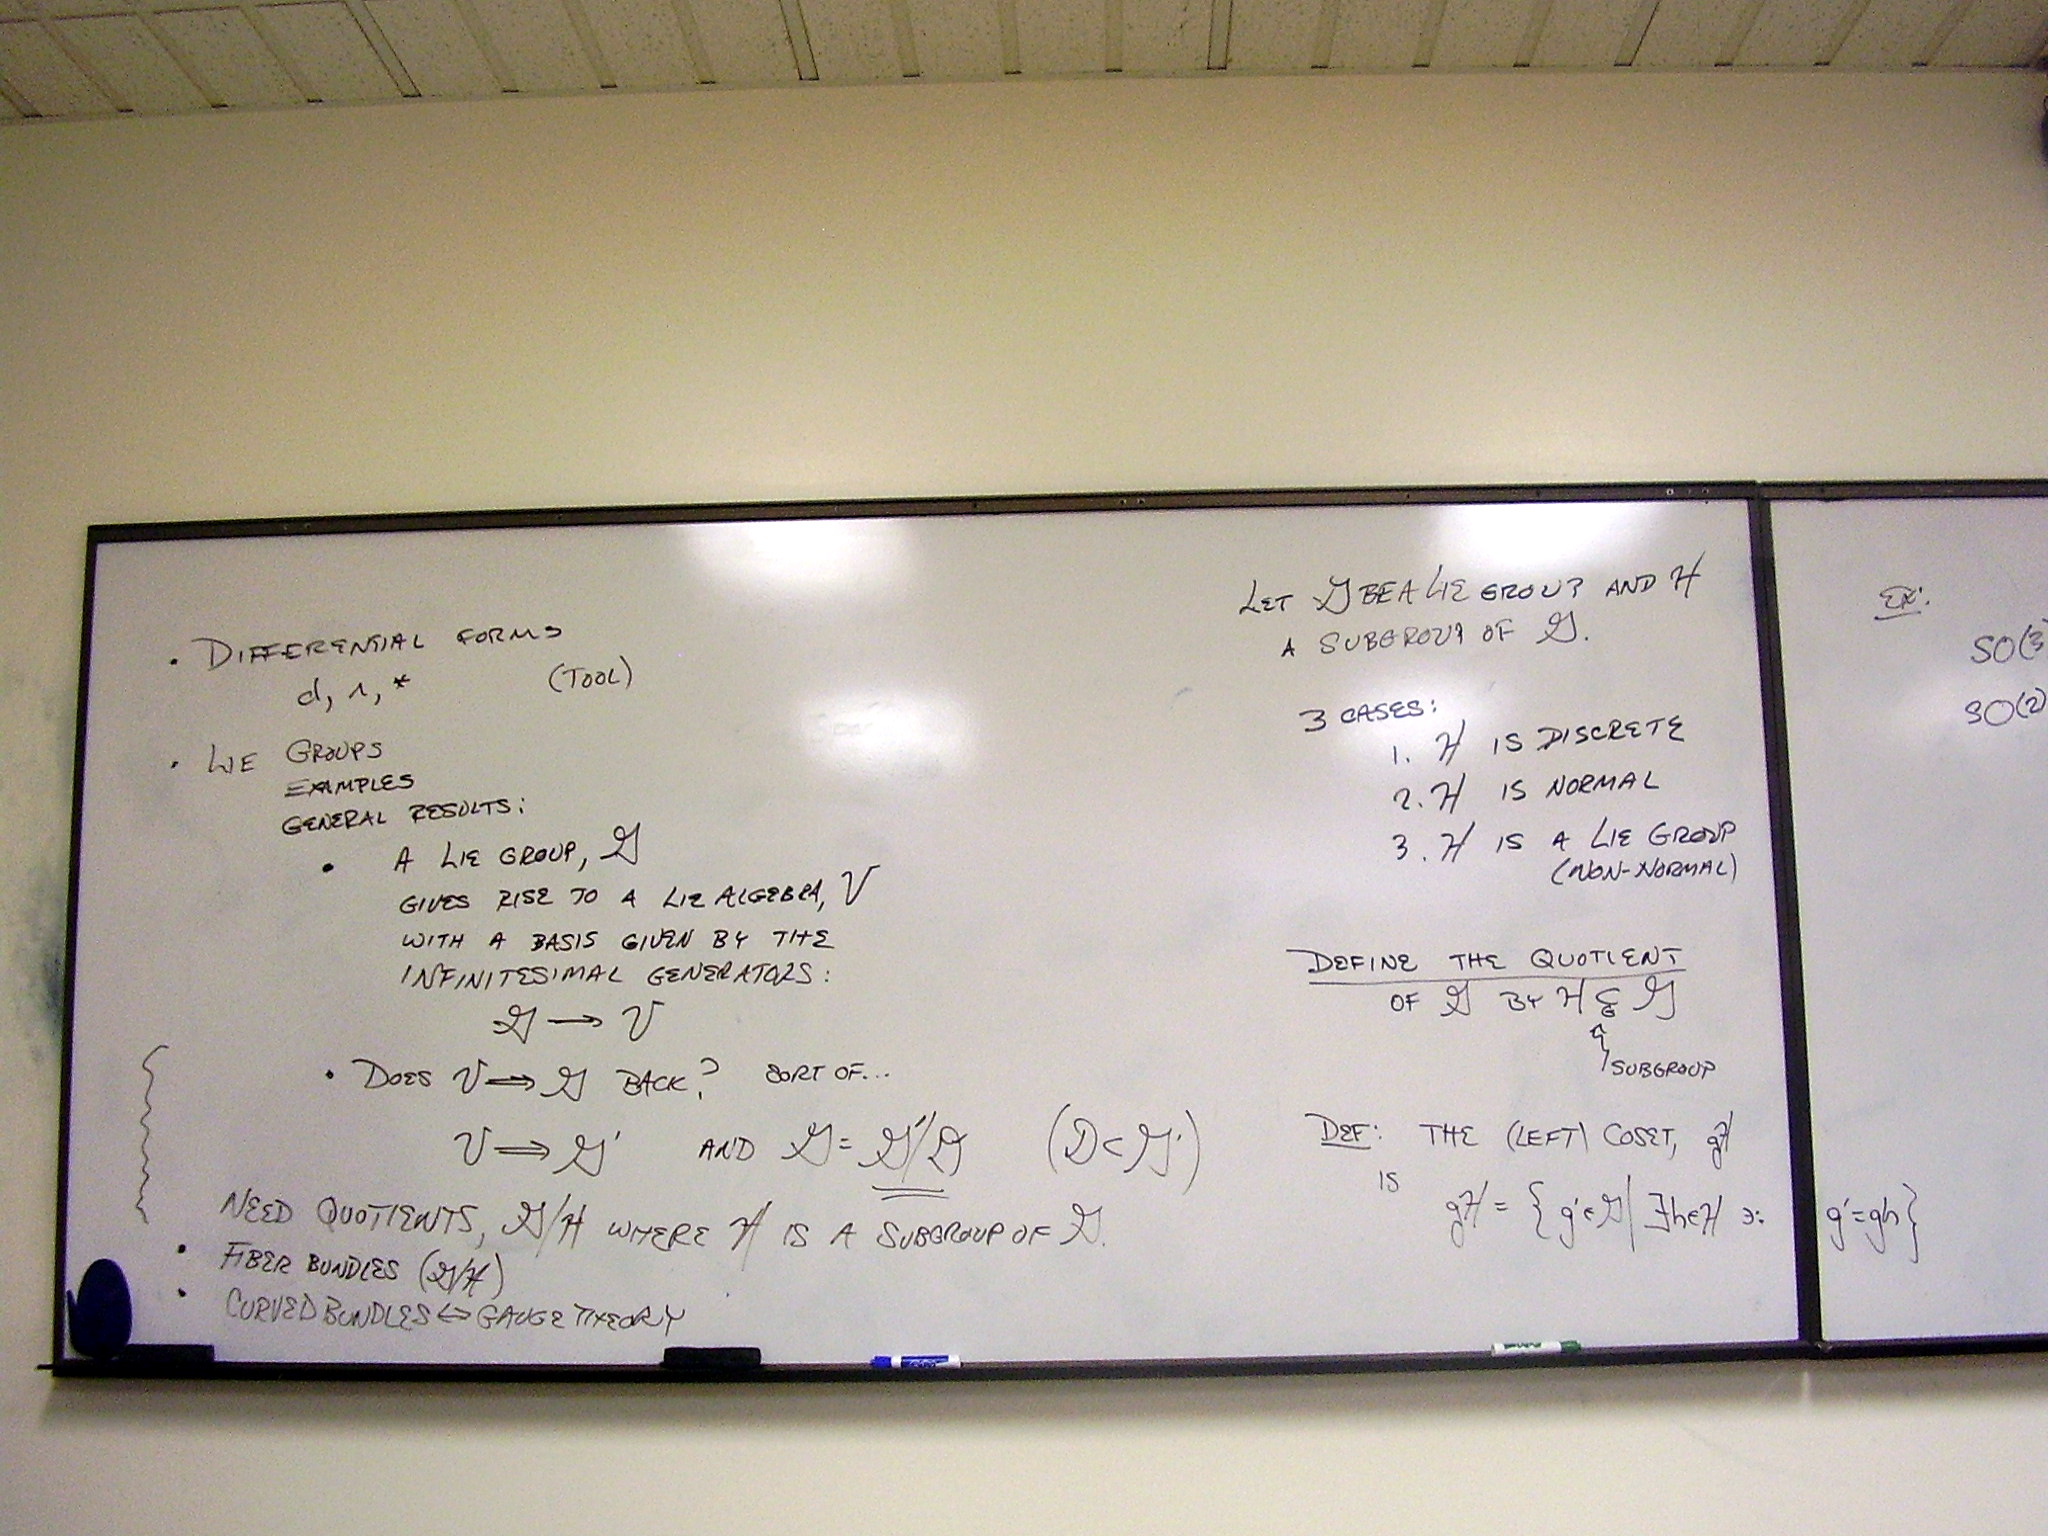 • DIFFERENTIAL FORMS
d, ∧, * (TOOL)
• LIE GROUPS
EXAMPLES
GENERAL RESULTS:
• A LIE GROUP, 𝒢
GIVES RISE TO A LIE ALGEBRA, V
WITH A BASIS GIVEN BY THE
INFINITESIMAL GENERATORS:
𝒢 → V
• DOES V ⟹ 𝒢 BACK? SORT OF...
V ⟹ 𝒢' AND 𝒢 = 𝒢'/D (D ⊂ 𝒢')
NEED QUOTIENTS, 𝒢/H WHERE H IS A SUBGROUP OF 𝒢.
• FIBER BUNDLES (𝒢/H)
• CURVED BUNDLES ⇔ GAUGE THEORY
LET 𝒢 BE A LIE GROUP AND H
A SUBGROUP OF 𝒢.
3 CASES:
1. H IS DISCRETE
2. H IS NORMAL
3. H IS A LIE GROUP
(NON-NORMAL)
DEFINE THE QUOTIENT
OF 𝒢 BY H ⊆ 𝒢
SUBGROUP
DEF: THE (LEFT) COSET, gH
IS
gH = { g' ∈ 𝒢 | ∃ h ∈ H ∋: g' = gh }
EX:
SO(3
SO(2)